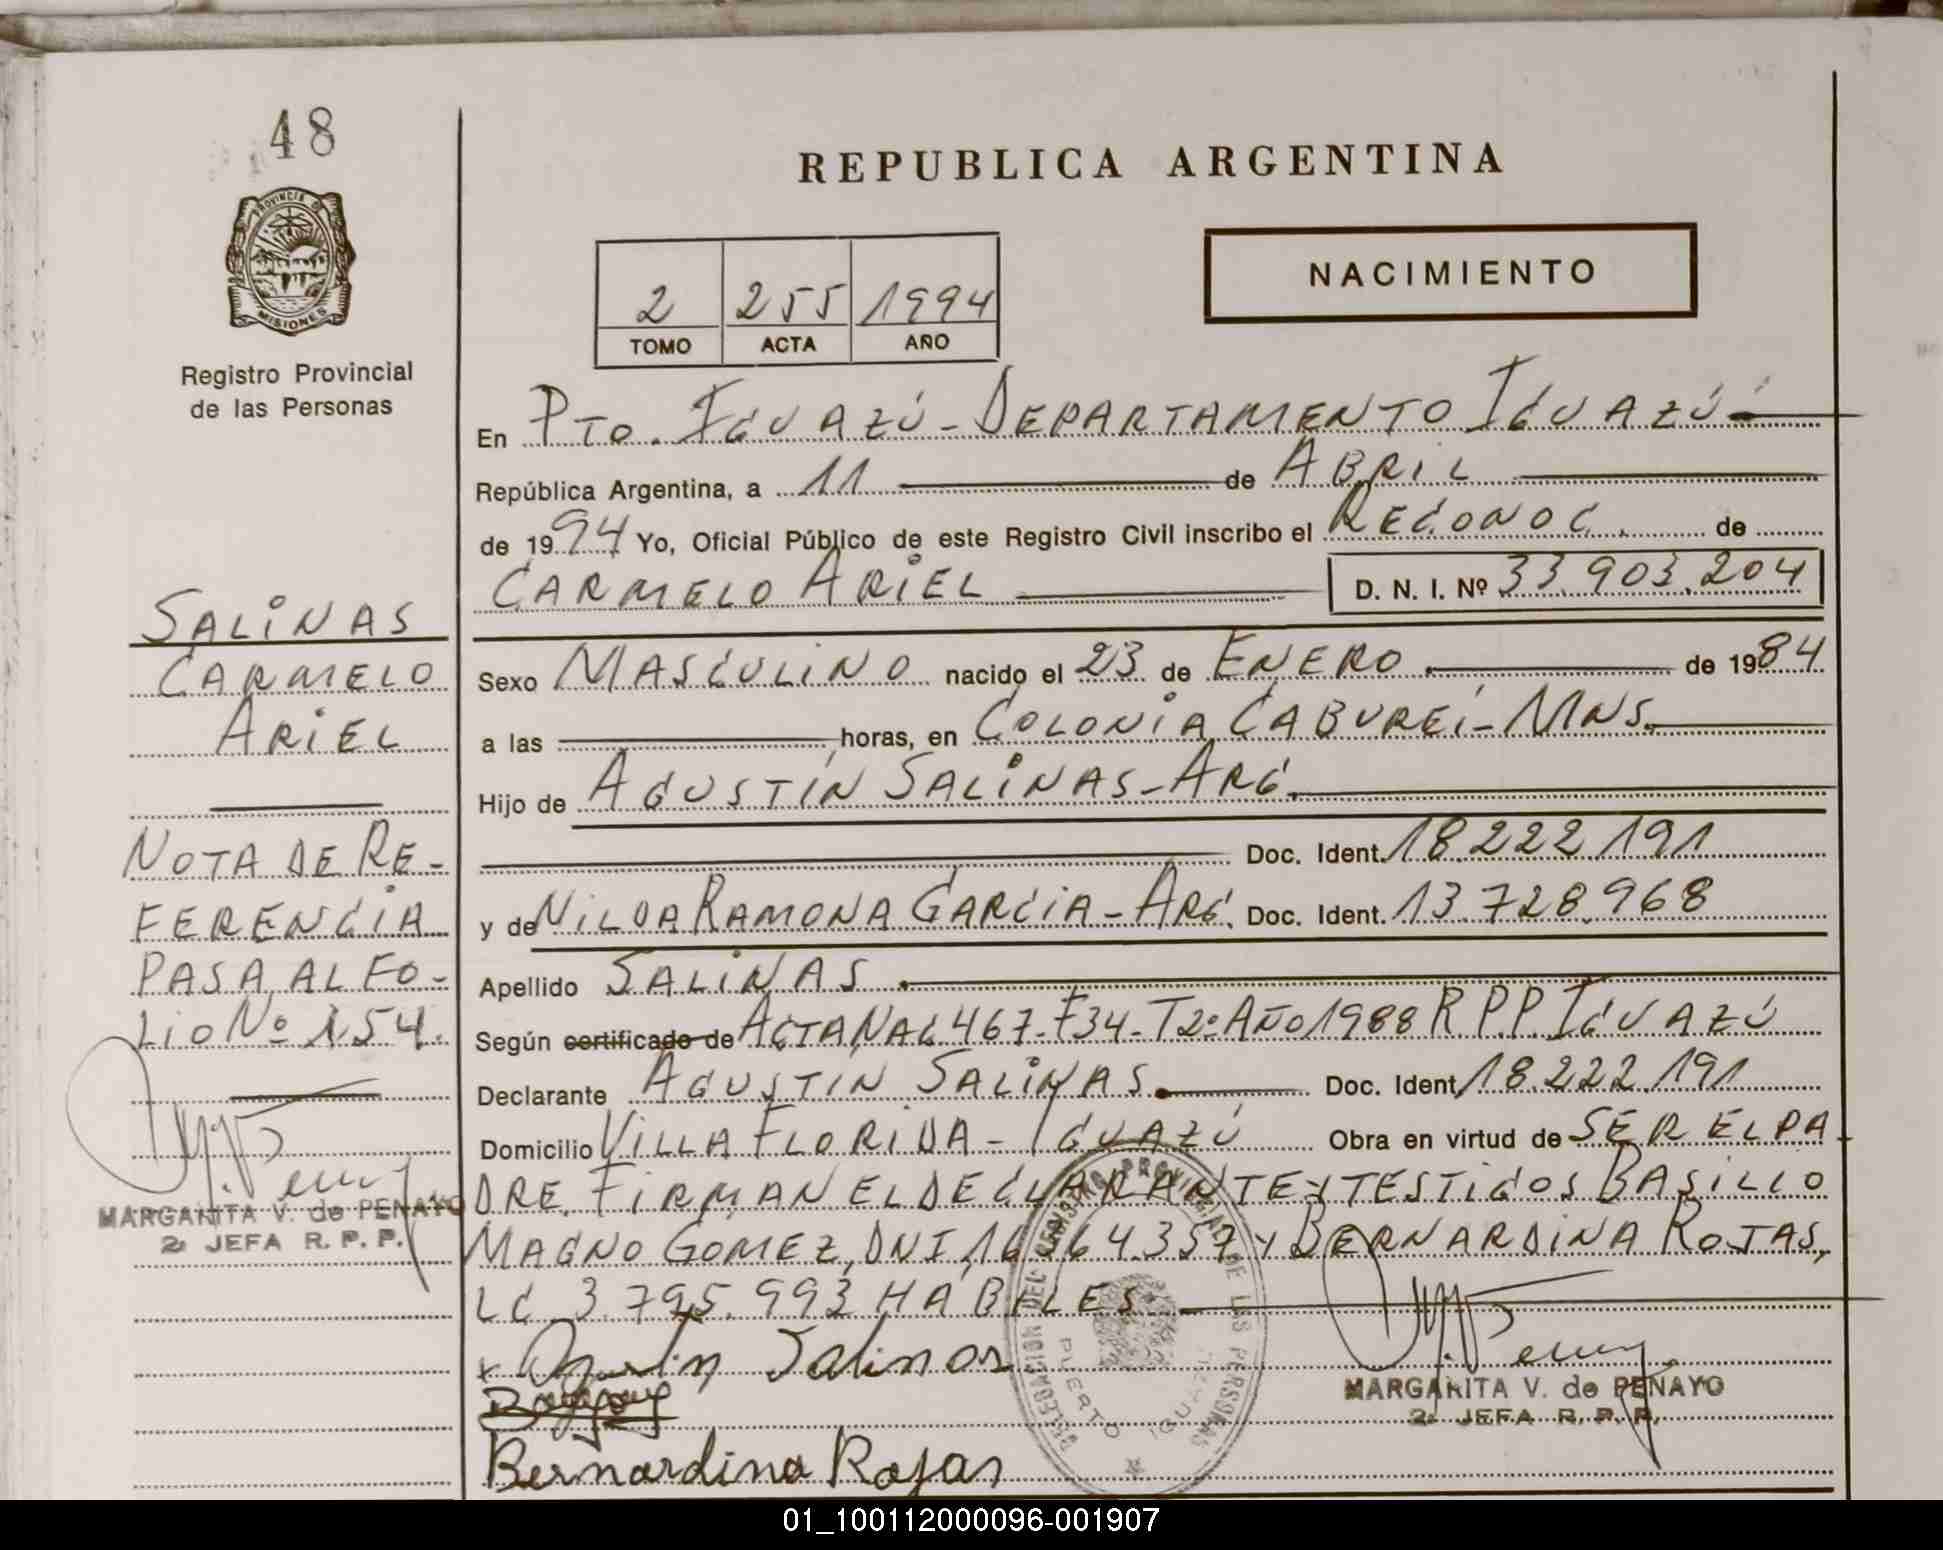 48
PROVINCIA DE
MISIONES
Registro Provincial
de las Personas
REPUBLICA ARGENTINA
NACIMIENTO
2 255 1994
TOMO ACTA AÑO
En PTO. IGUAZÚ - DEPARTAMENTO IGUAZÚ
República Argentina, a 11 de ABRIL
de 1994 Yo, Oficial Público de este Registro Civil inscribo el RECONOC. de
CARMELO ARIEL D. N. I. Nº 33.903.204
SALINAS
CARMELO
ARIEL
Sexo MASCULINO nacido el 23 de ENERO de 1984
a las horas, en COLONIA CABUREÍ - MNS.
Hijo de AGUSTÍN SALINAS - ARG.
Doc. Ident. 18.222.191
y de NILDA RAMONA GARCIA - ARG. Doc. Ident. 13.728.968
NOTA DE RE-
FERENCIA
PASA AL FO-
LIO Nº 154.
Apellido SALINAS
Según certificado de ACTA NAC 467 - F34 - T2º AÑO 1988 R.P.P. IGUAZÚ
Declarante AGUSTÍN SALINAS Doc. Ident. 18.222.191
Domicilio VILLA FLORIDA - IGUAZÚ Obra en virtud de SER EL PA
DRE. FIRMAN EL DECLARANTE Y TESTIGOS BASILIO
MAGNO GOMEZ, DNI, 16 64.357 Y BERNARDINA ROJAS,
LC 3.795.993 HABILES
MARGARITA V. de PENAYO
2ª JEFA R. P. P.
Agustin Salinas
Bernardina Rojas
DELEGACION DEL REGISTRO PROVINCIAL DE LAS PERSONAS
PUERTO IGUAZU
MARGARITA V. de PENAYO
2ª JEFA R. P. P.
01_100112000096-001907